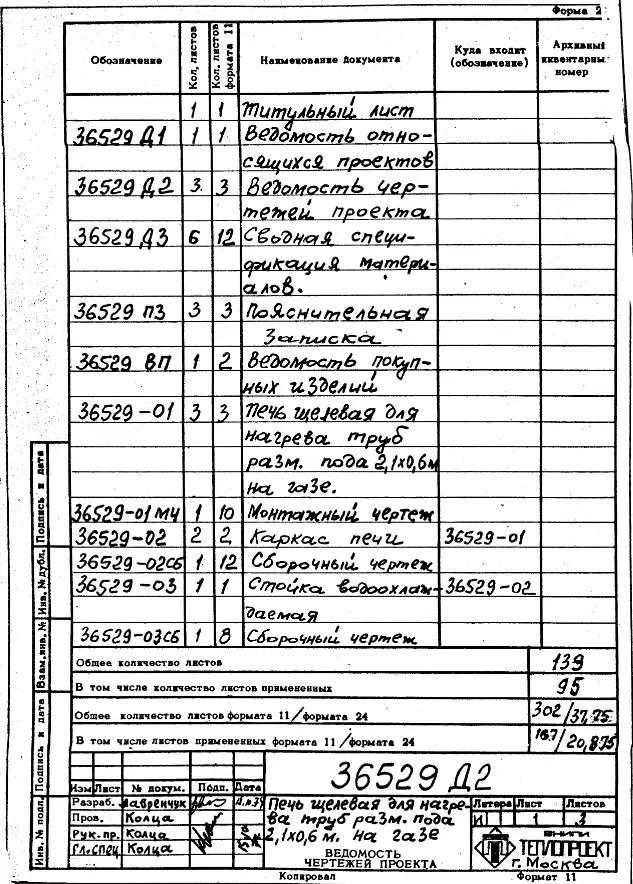 Форма 2
Обозначение Кол. листов Кол. листов формата 11 Наименование документа Куда входит (обозначение) Архивный инвентарны номер
1 1 Титульный лист
36529 Д1 1 1 Ведомость отно-
сящихся проектов
36529 Д2 3 3 Ведомость чер-
тежей проекта
36529 Д3 6 12 Сводная специ-
фикация матери-
алов.
36529 ПЗ 3 3 Пояснительная
Записка
36529 ВП 1 2 Ведомость покуп-
ных изделий
36529-01 3 3 Печь щелевая для
нагрева труб
разм. пода 2,1х0,6м
на газе.
36529-01МЧ 1 10 Монтажный чертеж
36529-02 2 2 Каркас печи 36529-01
36529-02СБ 1 12 Сборочный чертеж
36529-03 1 1 Стойка водоохлаж- 36529-02
даемая
36529-03СБ 1 8 Сборочный чертеж
Общее количество листов 139
В том числе количество листов примененных 95
Общее количество листов формата 11/формата 24 302/37,75
В том числе листов примененных формата 11/формата 24 167/20,875
Инв. № подл. Подпись и дата Взам. инв. № Инв. № дубл. Подпись и дата
36529 Д2
Изм Лист № докум. Подп. Дата
Разраб. Лавренчук
Пров. Колца
Рук. пр. Колца
Гл. спец Колца
Печь щелевая для нагре-
ва труб разм. пода
2,1х0,6 м. на газе
ВЕДОМОСТЬ
ЧЕРТЕЖЕЙ ПРОЕКТА
Литера Лист Листов
И 1 3
ВНИПИ
ТЕПЛОПРОЕКТ
г. Москва
Копировал Формат 11